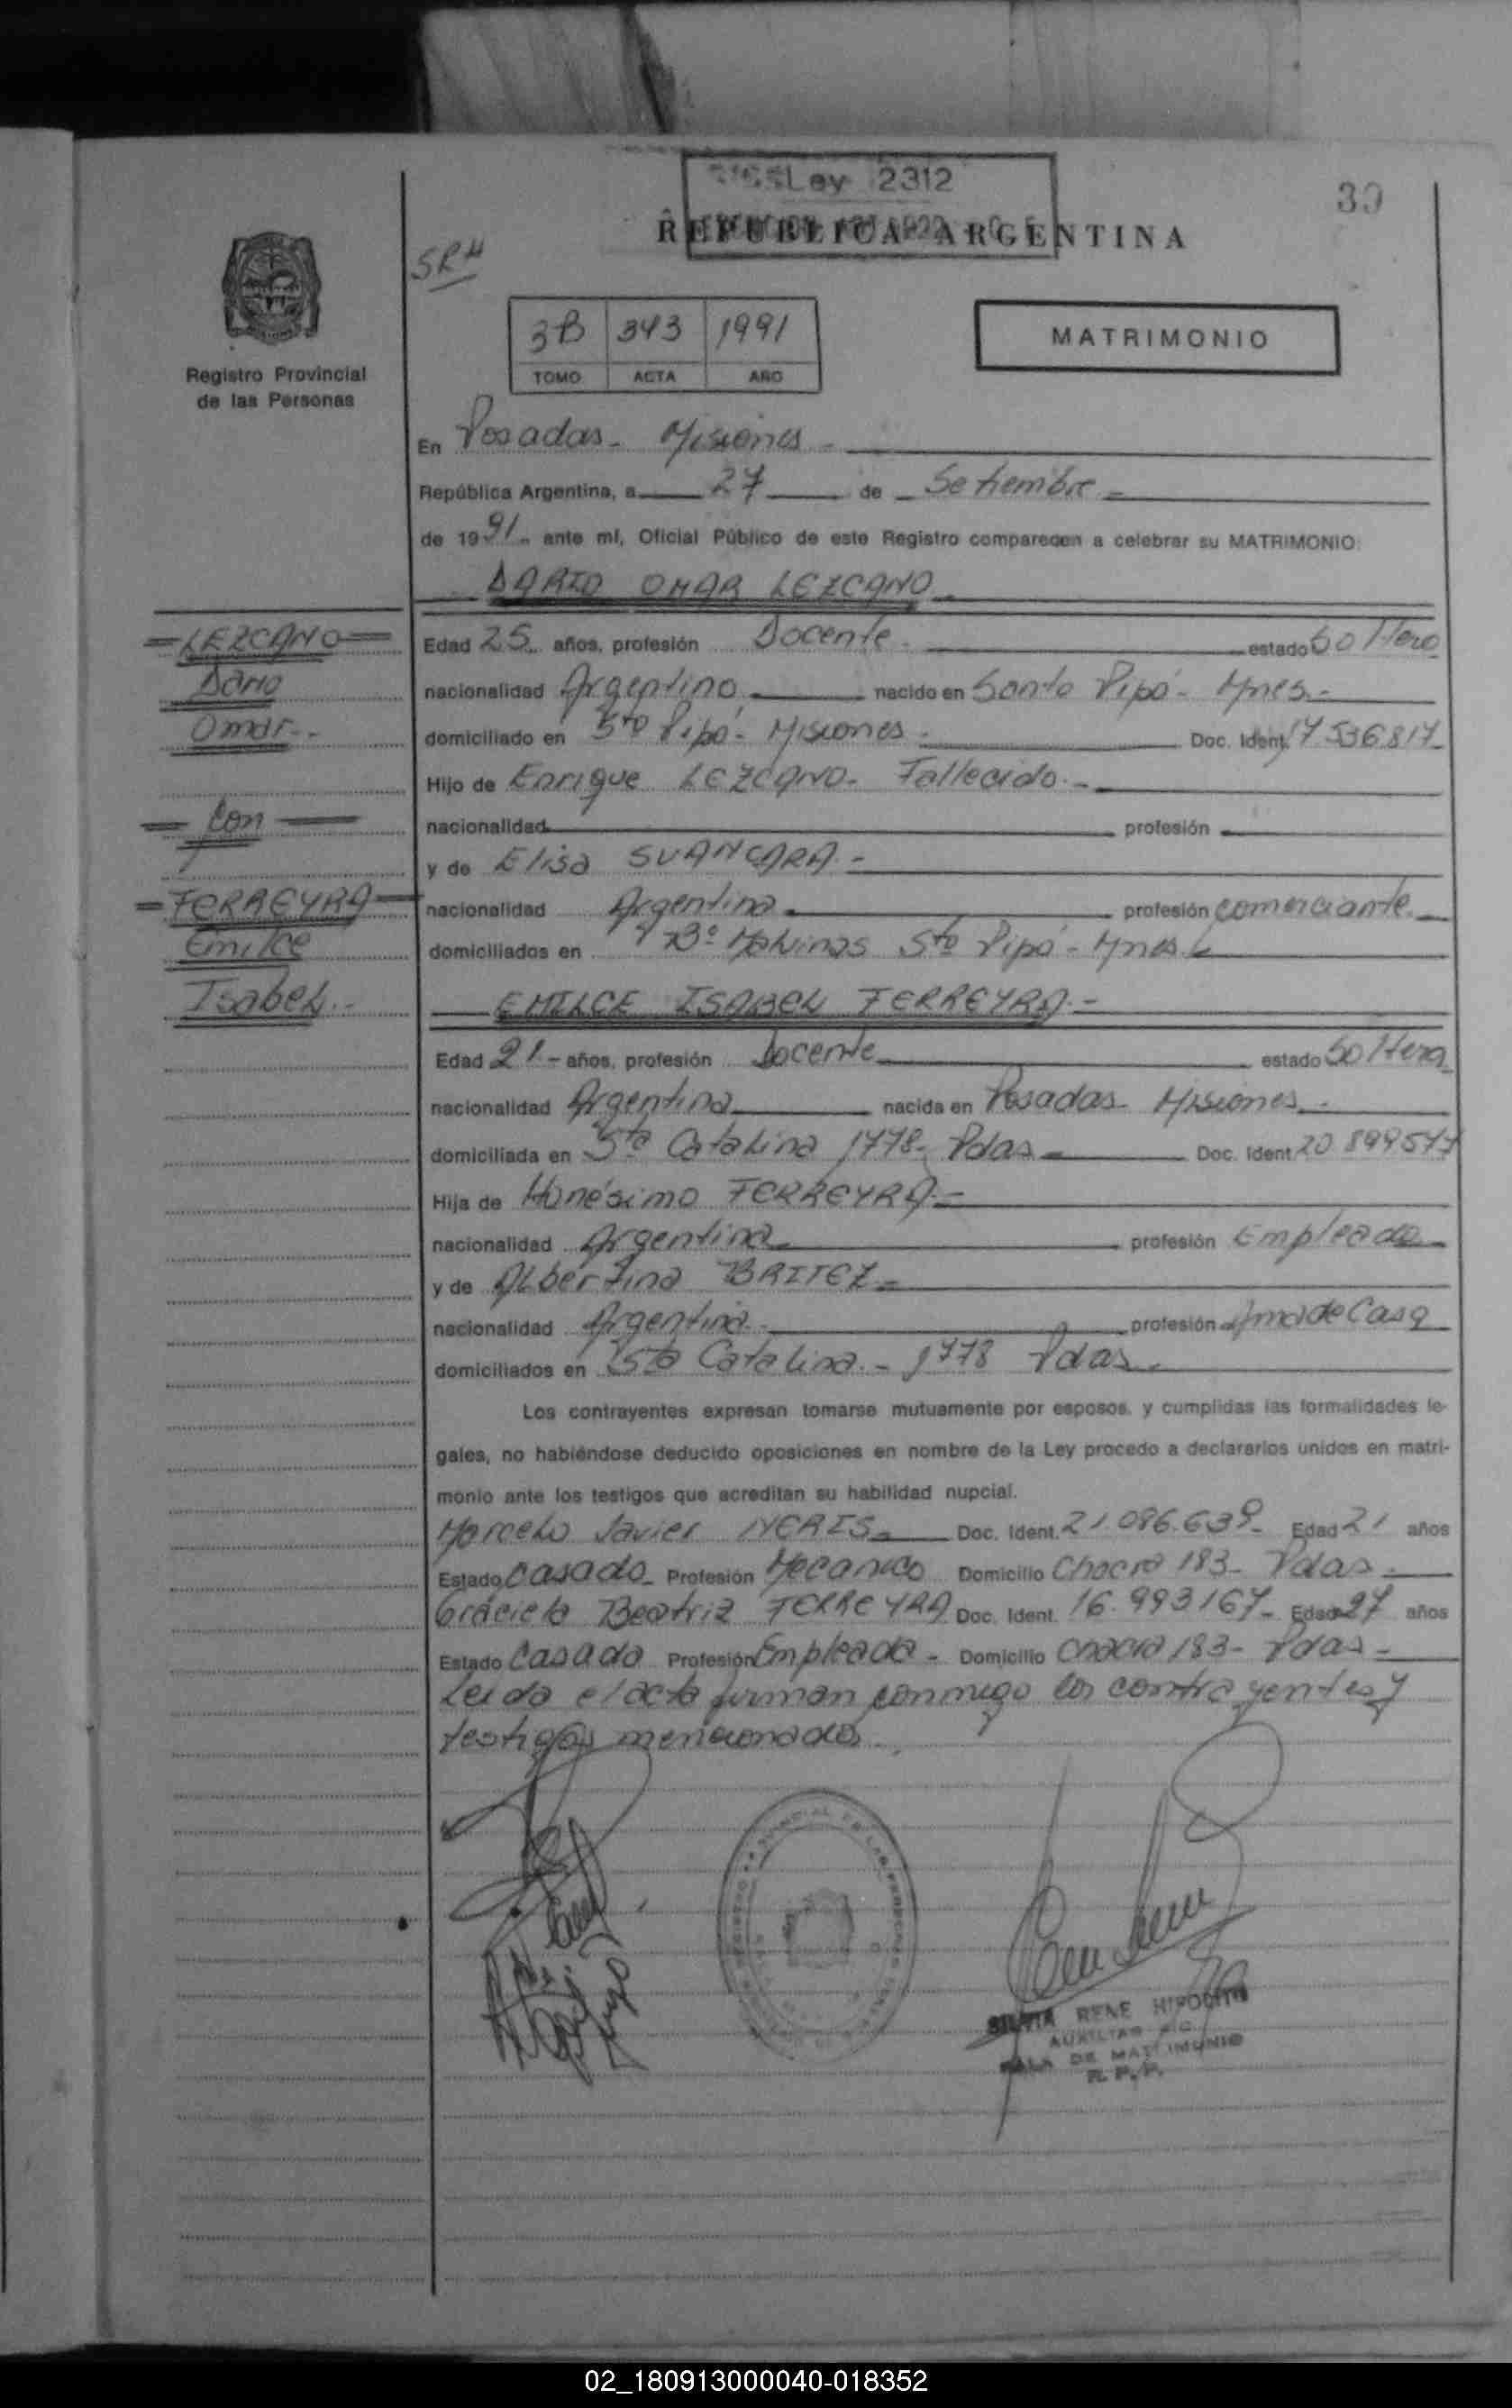 Ley 2312
30
REPUBLICA ARGENTINA
SRH
Registro Provincial
de las Personas
3B 343 1991
TOMO ACTA AÑO
MATRIMONIO
En Posadas - Misiones -
República Argentina, a 27 de Setiembre -
de 1991 - ante mí, Oficial Público de este Registro comparecen a celebrar su MATRIMONIO:
DARIO OMAR LEZCANO
= LEZCANO =
Dario
Omar. -
= Con =
= FERREYRA =
Emilce
Isabel. -
Edad 25 años, profesión Docente - estado Soltero
nacionalidad Argentino, nacido en Santo Pipó - Mnes. -
domiciliado en Sto Pipó - Misiones - Doc. Ident. 17 536 817
Hijo de Enrique LEZCANO - Fallecido. -
nacionalidad profesión
y de Elisa SVANCARA. -
nacionalidad Argentina profesión comerciante.
domiciliados en Bº Malvinas Sto Pipó - Mnes
EMILCE ISABEL FERREYRA. -
Edad 21 - años, profesión Docente estado Soltera
nacionalidad Argentina nacida en Posadas - Misiones -
domiciliada en Sta Catalina 1778 - Pdas Doc. Ident.
Hija de Honésimo FERREYRA -
nacionalidad Argentina profesión Empleado
y de Albertina BRITEZ -
nacionalidad Argentina - profesión Ama de Casa
domiciliados en Sta Catalina. - 1778 Pdas -
Los contrayentes expresan tomarse mutuamente por esposos, y cumplidas las formalidades le-
gales, no habiéndose deducido oposiciones en nombre de la Ley procedo a declararlos unidos en matri-
monio ante los testigos que acreditan su habilidad nupcial.
Marcelo Javier NERIS - Doc. Ident. 21.086.639 - Edad 21 años
Estado Casado - Profesión Mecanico Domicilio Chacra 183 - Pdas -
Graciela Beatriz FERREYRA Doc. Ident. 16.993167 - Edad 27 años
Estado Casada Profesión Empleada - Domicilio Chacra 183 - Pdas -
Leida el acta firman conmigo los contrayentes y
testigos mencionados.
SILVIA RENE HIPOLITO
AUXILIAR
SALA DE MATRIMONIO
R. P. P.
02_180913000040-018352